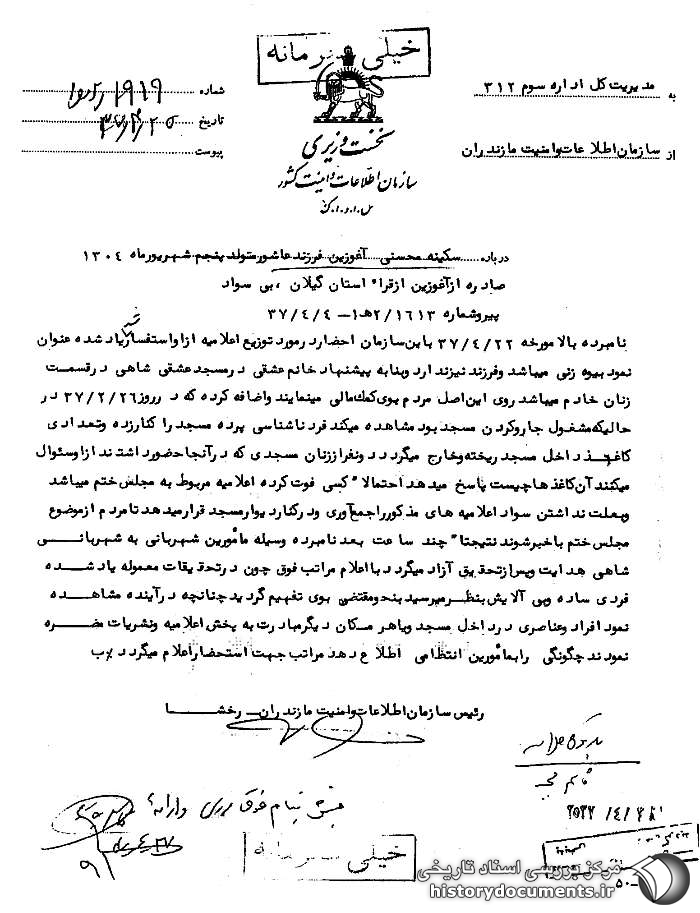 خیلی محرمانه
به مدیریت کل اداره سوم ۳۱۲
از سازمان اطلاعات وامنیت مازندران
نخست وزیری
سازمان اطلاعات وامنیت کشور
س.ا.و.ا.ک
شماره
تاریخ
پیوست
درباره سکینه محسنی آغوزین فرزند عاشور متولد پنجم شهریورماه ۱۳۰۴
صادره ازآغوزین ازقراء استان گیلان ، بی سواد
پیروشماره ۲/۱۶۱۳هـ۱ – ۳۷/۴/۴
نامبرده بالا مورخه ۳۷/۴/۲۲ باین سازمان احضار درمورد توزیع اعلامیه ازاواستفسار یاد شده عنوان
نمود بیوه زنی میباشد وفرزند نیزندارد وبنابه پیشنهاد خانم عشقی درمسجد عشقی شاهی درقسمت
زنان خادم میباشد روی این اصل مردم بوی کمک مالی مینمایند واضافه کرده که در روز ۳۷/۲/۲۶ در
حالیکه مشغول جاروکردن مسجد بود مشاهده میکند فرد ناشناسی پرده مسجد را کنارزده وتعدادی
کاغذ داخل مسجد ریخته وخارج میگردد دونفراززنان مسجدی که درآنجا حضورداشتند ازاوسئوال
میکنند آن کاغذ هاچیست پاسخ میدهد احتمالا" کسی فوت کرده اعلامیه مربوط به مجلس ختم میباشد
وبعلت نداشتن سواد اعلامیه های مذکورراجمع آوری ودرکنار دیوارمسجد قرارمیدهد تامردم ازموضوع
مجلس ختم باخبرشوند نتیجتا" چند ساعت بعد نامبرده وسیله مأمورین شهربانی به شهربانی
شاهی هدایت وپس ازتحقیق آزاد میگردد بااعلام مراتب فوق چون درتحقیقات معموله یاد شده
فردی ساده وبی آلایش بنظرمیرسید بنحومقتضی بوی تفهیم گردید چنانچه درآینده مشاهده
نمود افراد وعناصری درداخل مسجد ویاهر مکان دیگرمبادرت به پخش اعلامیه ونشریات مضره
نمودند چگونگی رابمأمورین انتظامی اطلاع دهد مراتب جهت استحضاراعلام میگردد ب
رئیس سازمان اطلاعات وامنیت مازندران – رخشا
خیلی محرمانه
مرکز بررسی اسناد تاریخی
historydocuments.ir